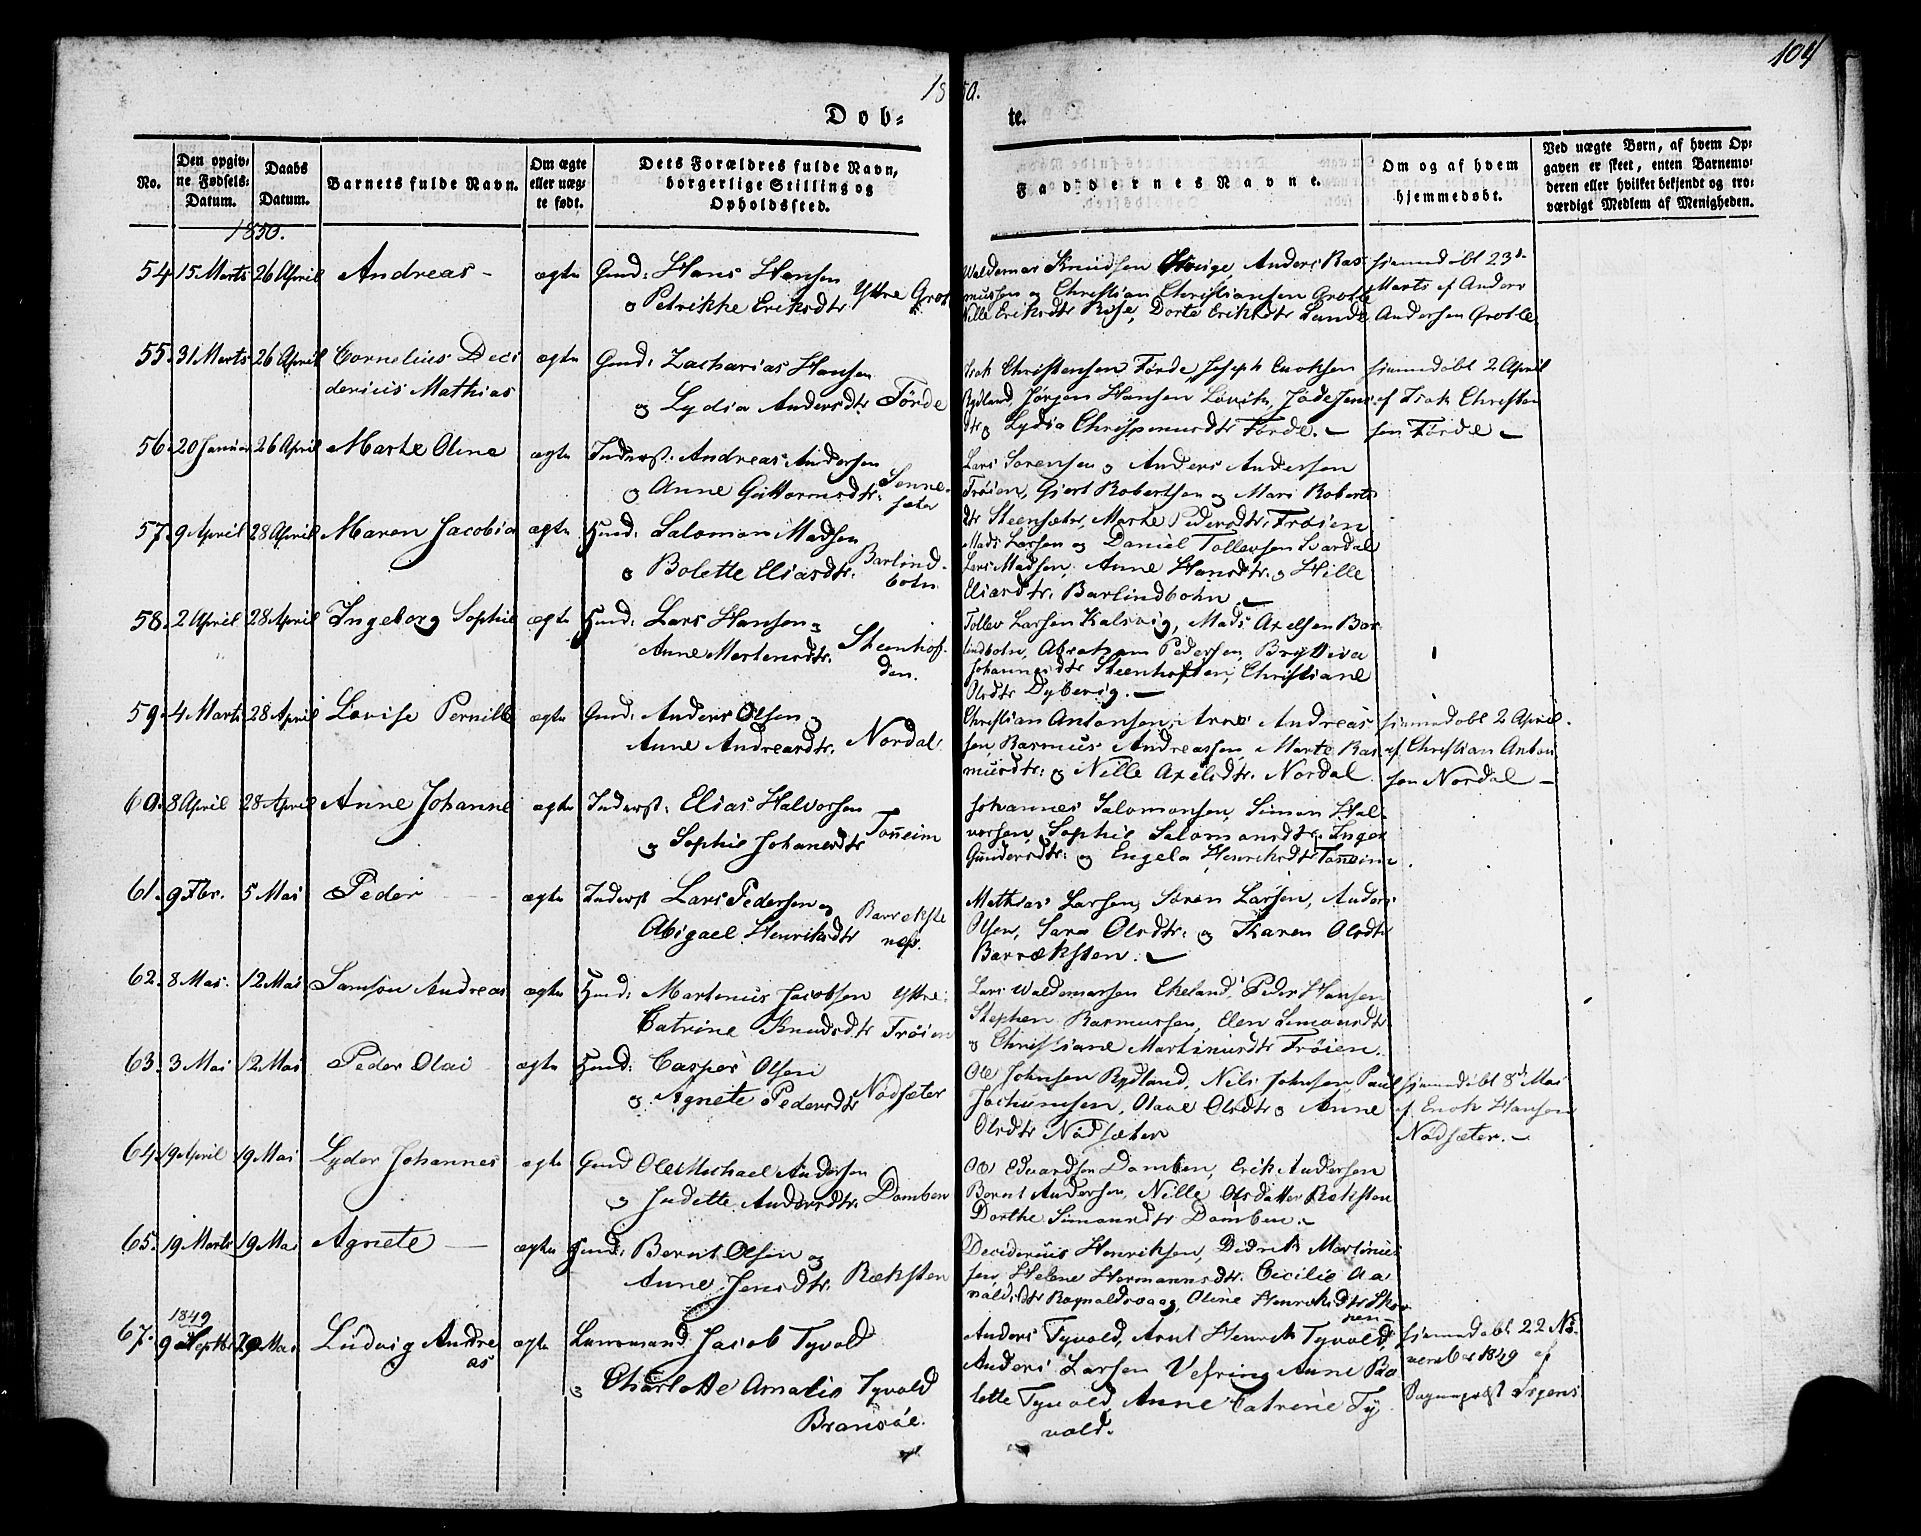 104
1850.
Döb= te.
No.
Den opgiv=
ne Fødsels=
Datum.
Daabs
Datum.
Barnets fulde Navn.
Om ægte
eller uæg=
te født.
Dets Forældres fulde Navn,
borgerlige Stilling og
Opholdssted.
Faddernes Navne.
Om og af hvem
hjemmedøbt.
Ved uægte Børn, af hvem Op=
gaven er skeet, enten Barnemo=
deren eller hvilket bekjendt og tro=
værdigt Medlem af Menigheden.
1850.
54 15 Marts 26 April Andreas - ægte Gmd: Hans Hansen
o Petrikke Eriksdtr Yttre Grot
Waldemar Knudsen Hauge, Anders Ras
mussen og Christian Christiansen Grotle
Nille Eriksdtr Rise, Dorte Eriksdtr Lunde
hjemmedøbt 23de
Marts af Anders
Andersen Grotle
55. 31 Marts 26 April Cornelius Deci
derius Mathias
ægte Gmd: Zacharias Hansen
og Lydia Andersdtr Førde
Isak Christensen Førde, Joseph Enoksen
Rydland, Jørgen Hansen Løvik, Jode Jens
dtr og Lydia Chrispinusdtr Førde. -
hjemmedøbt 2 April
af Isak Christen
sen Førde -
56. 20 Januar 26 April Marte Oline ægte Inderst: Andreas Andersen
og Anne Guttormsdtr: Senne-
sæter
Lars Sørensen og Anders Andersen
Trøien, Giert Robertsen og Mari Roberts
dtr Steensæter, Marte Pedersdtr: Frøien
57. 9 April 28 April Maren Jacobia ægte Huusd: Salomon Madsen
o Bolette Eliasdtr. Barlind-
botn
Mads Larsen og Daniel Tollevsen Svardal
Lars Madsen, Anne Hansdtr. og Hille
Eliasdtr: Barlindbotn -
58. 2 April 28 April Ingeborg Sophie ægte Huusd: Lars Hansen og
Anne Mortensdtr. Steenhof-
den.
Tollev Larsen Kalsvig, Mads Axelsen Bar
lindbotn, Abraham Pedersen, Bryttiva
Johannesdtr Steenhoften, Christiane
Olsdtr Dybevig. -
59. 4 Marts 28 April Lovise Pernille ægte Gmd: Anders Olsen og
Anne Andreasdtr. Nordal
Christian Antonsen, Arne Andreas
sen, Rasmus Andreassen, Marte Ras
musdtr: og Nille Axelsdtr. Nordal.
hjemmedøbt 2 April.
af Christian Anton
sen Nordal -
60. 8 April 28 April Anne Johanne ægte Inderst: Elias Halvorsen
og Sophie Johanesdtr Tonheim
Johannes Salomonsen, Simon Hal-
vorsen, Sophie Salomonsdtr. Inger
Gundersdtr: og Engela Henriksdtr Tonheim.
61. 9 Fbr. 5 Mai Peder - ægte Inderst Lars Pedersen og
Abigael Henriksdtr Barrekste
næs.
Mathias Larsen, Søren Larsen, Anders
Olsen, Sara Olsdtr: og Karen Olsdtr
Barræksten. -
62. 8 Mai. 12 Mai Samson Andreas ægte Huusd: Martinus Jacobsen Yttre:
Catrine Knudsdtr Frøien
Lars Waldemarsen Ekeland, Peder Hansen
Stephen Rasmussen, Elen Simonsdtr.
og Christiane Martinusdtr Frøien.
63. 3 Mai 12 Mai Peder Olai ægte Huusd: Casper Olsen
og Agnete Pedersdtr Nødsæter
Ole Johnsen Rydland, Nils Johnsen, Paul
Jochumsen, Olave Olsdtr og Anne
Olsdtr Nødsæter
hjemmedøbt 8de Mai
af Enok Hansen
Nødsæter. -
64. 19 April 19 Mai Lyder Johannes ægte Gmd Ole Michael Andersen
og Juditte Andersdtr. Domben
Ole Edvardsen Domben, Erik Andersen
Bernt Andersen, Nille Olsdatter Ræksten
Dorthe Simonsdtr Domben. -
65. 19 Marts 19 Mai Agnete - ægte Huusd: Bernt Olsen og
Anne Jensdtr. Ræksten
Deciderius Henriksen, Didrik Martinus
sen, Helene Hermannsdtr. Cecilie Aa
naldsdtr Rognaldsvaag, Oline Henriksdtr Skor
pen -
67. 1849
9 Septbr 29 Mai Ludvig Andre
as
ægte Lænsmand Jacob Tyvold
og Charlotte Amalie Tyvold
Bransøe.
Anders Tyvold, Arnt Henrik Tyvold,
Anders Larsen Vefring, Anne Bo
lette Tyvold, Anne Catrine Ty
vold.
hjemmedøbt 22 No
vember 1849 af
Sognepræst Irgens